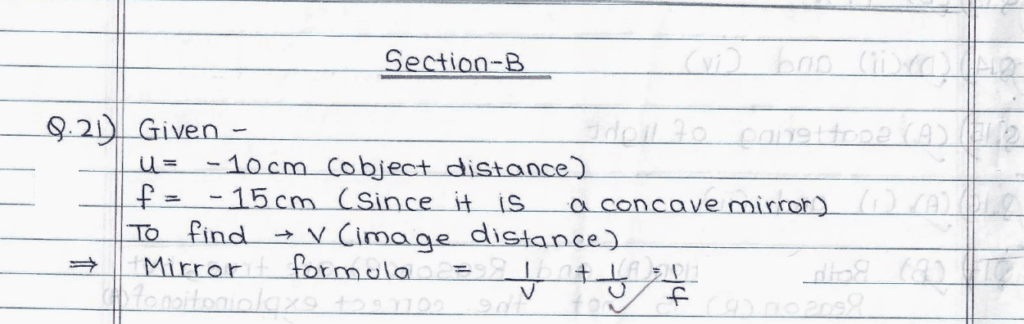 Section-B
Q.21) Given -
u = -10cm (object distance)
f = -15cm (since it is a concave mirror)
To find → v (image distance)
⇒ Mirror formula = 1/v + 1/u = 1/f